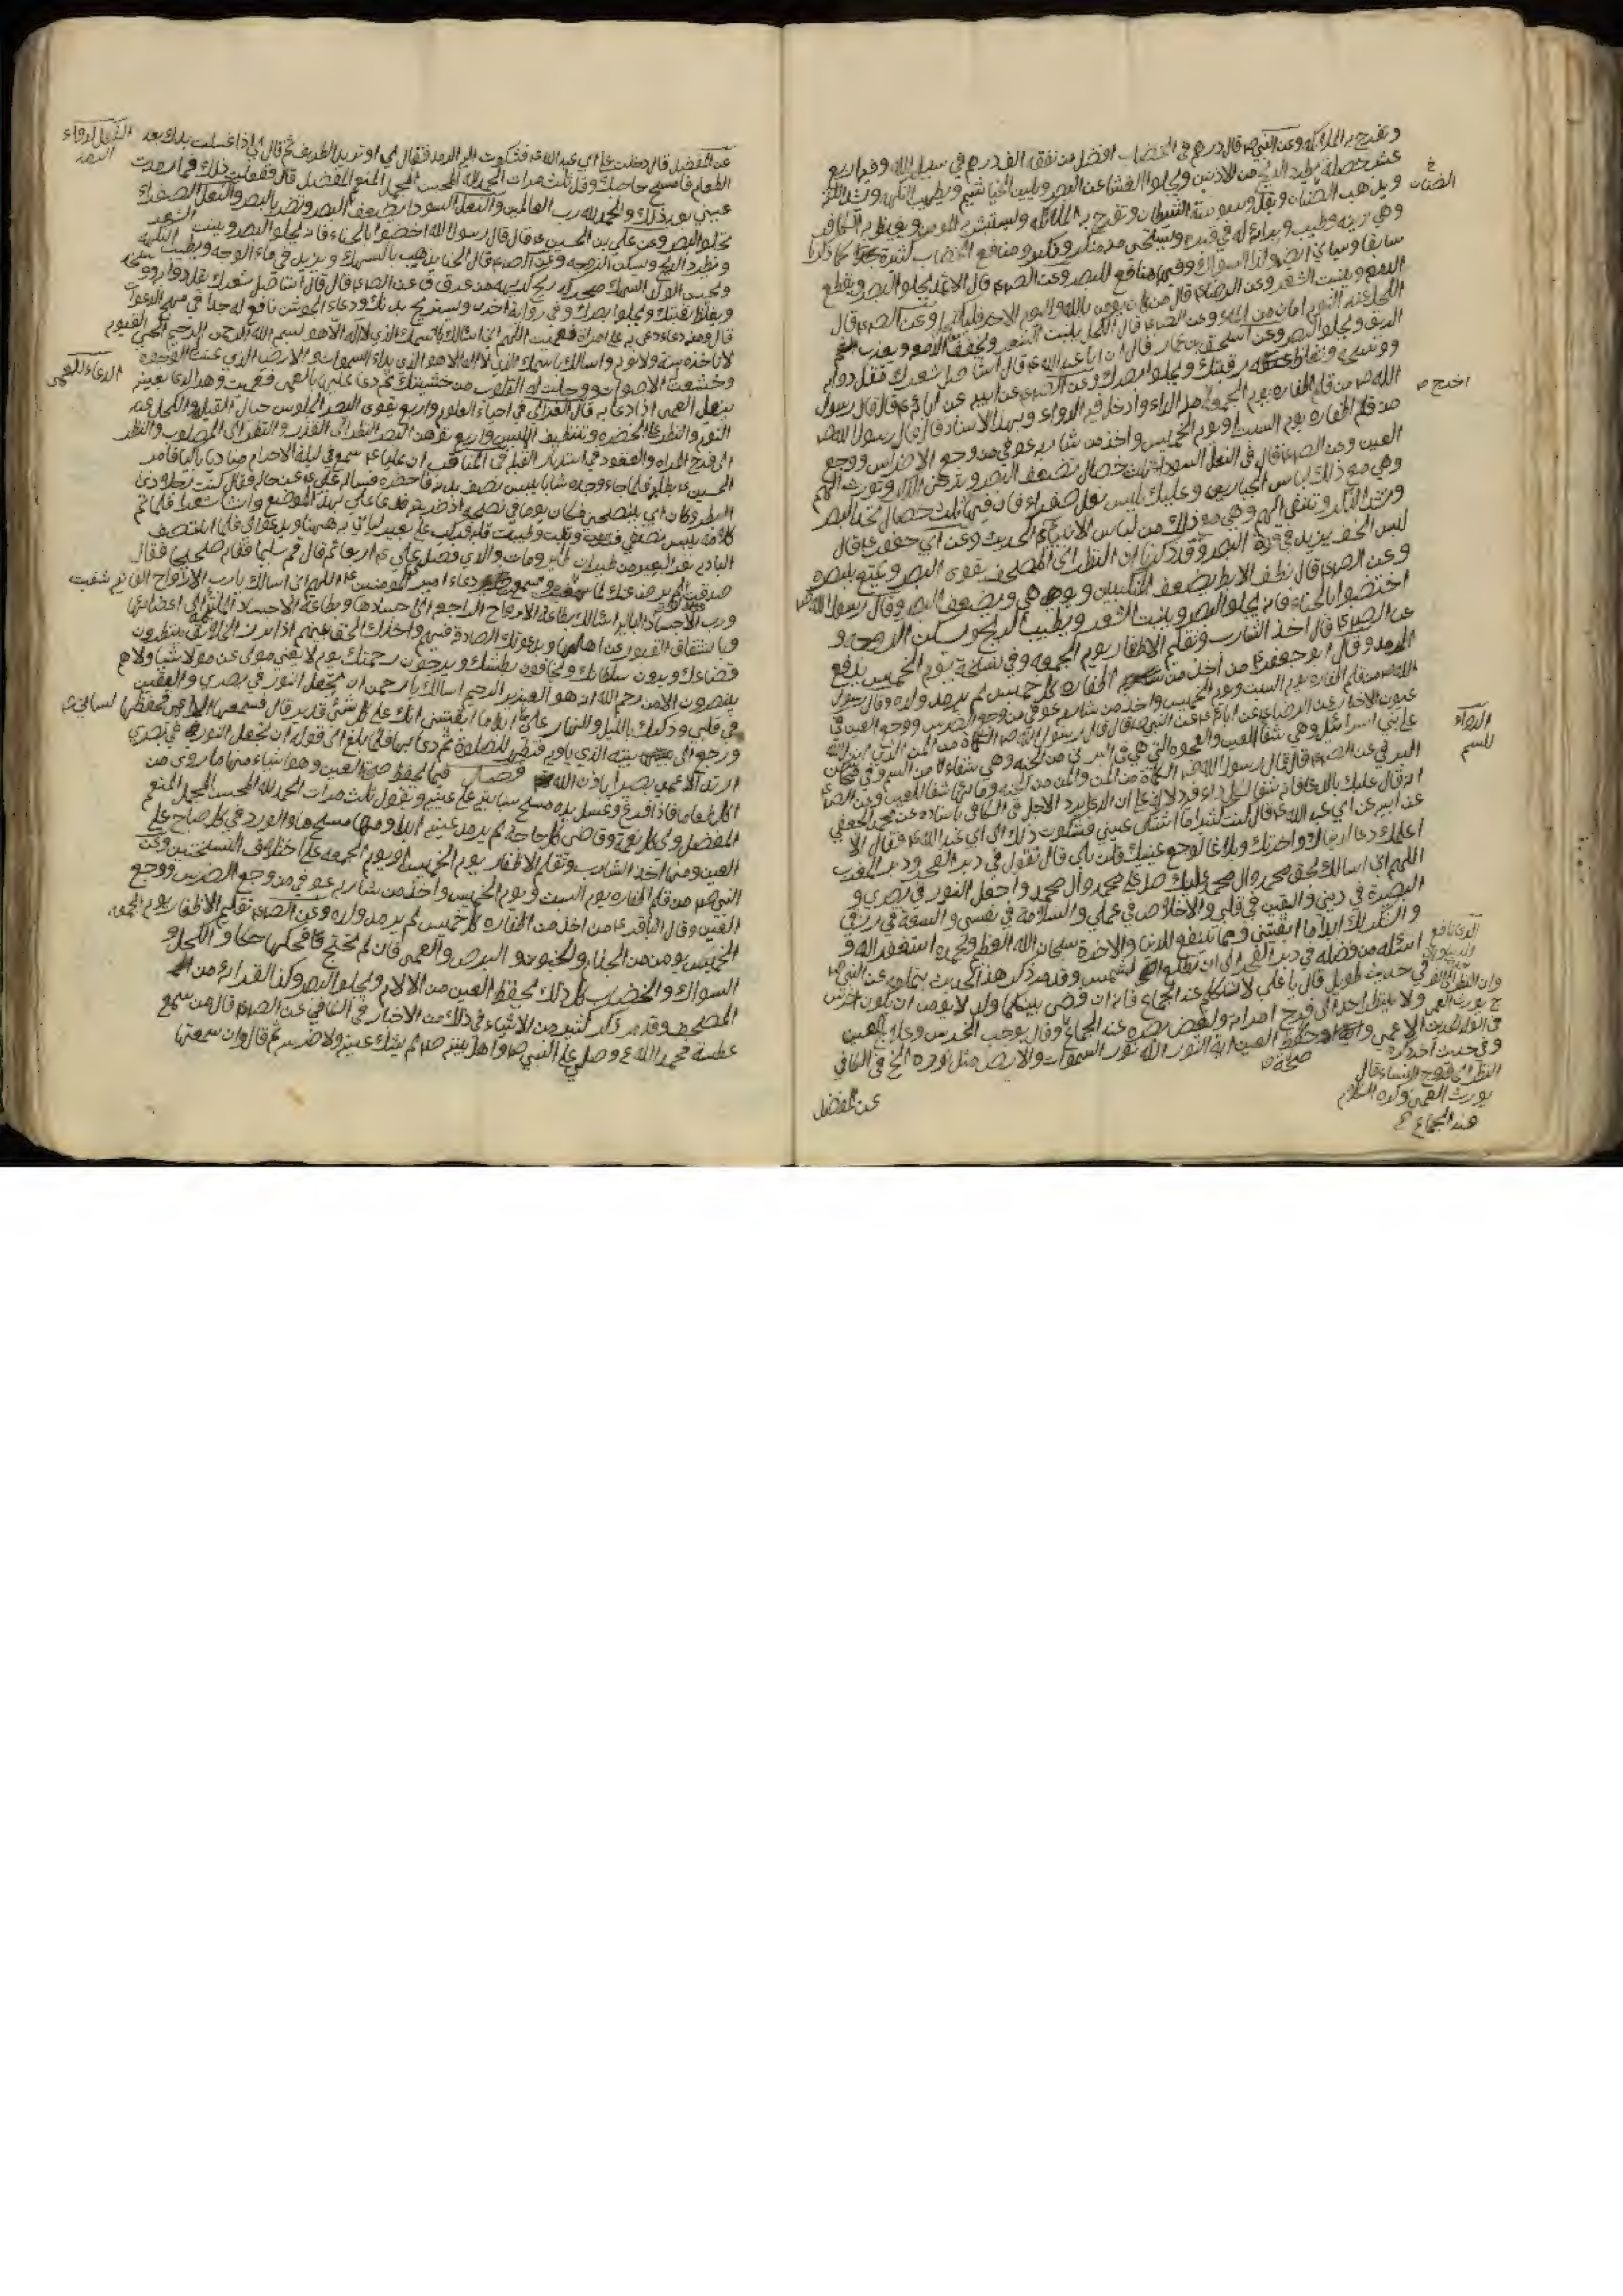 وتفرح به الملائكة وعن النبي ص قال درهم في الخضاب افضل من نفقة الف درهم في سبيل الله وفيه اربع
عشر خصلة يطرد الريح من الاذنين ويجلوا الغشا عن البصر ويلين الخياشيم ويطيب النكهة ويشد اللثة
ويذهب الضنان ويقل وسوسة الشيطان وتفرح به الملائكة ويستبشر به المومن ويغيظ به الكافر
وهي زينة وطيب وبراءة له في قبره ويستحي منه منكر ونكير ومنافع الخضاب كثيرة كما ذكرنا
سابقا وسياتي ايضا وكذا السواك وفيهما منافع للبصر وعن الص ع قال الاثمد يجلوا البصر ويقطع
الدمع وينبت الشعر وعن الرضا ع قال من كان يومن بالله واليوم الاخر فليكتحل وعن الص ع قال
الكحل عند النوم امان من الماء وعن الص ع قال الكحل ينبت الشعر ويجفف الدمع ويعذب
الريق ويجلوا البصر وعن اسحق بن عمار قال ان ابا عبد الله ع قال استاصل شعرك تقل دوابه
ووسخه وتغلظ رقبتك ويجلوا بصرك وعن الرضا ع عن ابيه عن ابائه ع قال قال رسول
الله ص من قلم اظفاره يوم الجمعة اخرج الداء وادخل فيه الدواء وبهذا الاسناد قال قال رسول الله ص
من قلم اظفاره يوم السبت ويوم الخميس واخذ من شاربه عوفي من وجع الاضراس ووجع
العين وعن الص ع قال في النعل السوداء ثلث خصال تضعف البصر وترخي الذكر وتورث الهم
وهي مع ذلك لباس الجبارين وعليك بلبس نعل صفراء فان فيها ثلث خصال تحد البصر
وتشد الذكر وتنفي الهم وهي مع ذلك من لباس الانبياء الحديث وعن ابي جعفر ع قال
لبس الخف يزيد في قوة البصر وقد ذكرنا ان النظر الى المصحف يقوى البصر ويمتع ببصره
وعن الص ع قال نتف الابط يضعف المنكبين ويوهي ويضعف البصر وقال رسول الله ص
اختضبوا بالحناء فانه يجلو البصر وينبت الشعر ويطيب الريح ويسكن الزوجة و
عن الص ع قال اخذ الشارب وتقليم الاظفار يوم الجمعة وفي نسخة يوم الخميس يدفع
الرمد وقال ابو جعفر ع من اخذ من اظفاره كل خميس لم يرمد ولده وقال رسول
الله ص من قلم اظفاره يوم السبت ويوم الخميس واخذ من شاربه عوفي من وجع الضرس ووجع العين
عيون الاخبار عن الرضا ع عن ابائه ع عن النبي ص قال قال رسول الله ص الكماة من المن الذي انزل الله
على بني اسرائيل وهي شفا العين والعجوة التي هي في البرني من الجنة وهي شفاء من السم
البرقي عن الص ع قال قال رسول الله ص الكماة من المن والمن من الجنة وماؤها شفا للعين وعن الص ع
انه قال عليك بالدعاء فانه شفا لكل داء في الكافي باسناده عن محمد الجعفي
عن ابيه عن ابي عبد الله ع قال كنت كثيرا ما اشتكي عيني فشكوت ذلك الى ابي عبد الله ع فقال الا
اعلمك دعا لدنياك واخرتك وبلاغا لوجع عينيك قلت بلى قال تقول في دبر الفجر ودبر المغرب
اللهم اني اسالك بحق محمد وال محمد عليك صل على محمد وال محمد واجعل النور في بصري و
البصيرة في ديني واليقين في قلبي والاخلاص في عملي والسلامة في نفسي والسعة في رزقي
والشكر لك ابدا ما ابقيتني ومما ينفع للدنيا والاخرة سبحان الله العظيم وبحمده استغفر الله و
اسئله من فضله في دبر الفجر الى ان تطلع الشمس وقد مر ذكر هذا الحديث بتمامه وعن النبي ص
في حديث طويل قال يا علي لا تتكلم عند الجماع فانه ان قضى بينكما ولد لا يؤمن ان يكون اخرس
ولا ينظر احد الى فرج امراته وليغض بصره عند الجماع
الاعمى وحفظ العين اية النور الله نور السموات والارض مثل نوره الخ في الكافي
عن المفضل
الضنان خ
اخرج ص
الدواء
للسم
وفي حديث اخر كره
النظر الى فروج النساء قال
يورث العمى وكره الكلام
عند الجماع
عن المفضل قال دخلت على ابي عبد الله ع فشكوت اليه الرمد فقال لي او تريد الطريف ثم قال لي اذا غسلت يدك بعد
الطعام فامسح حاجبيك وقل ثلث مرات الحمد لله المحسن المجمل المنعم المفضل قال ففعلت ذلك فما رمدت
عيني بعد ذلك والحمد لله رب العالمين والنعل السودا يضعف البصر وتضر بالبصر والنعل الصفراء
تجلو البصر وعن علي بن الحسين ع قال قال رسول الله اخضبوا بالحناء فانه يجلو البصر وينبت الشعر
ويطرد الريح ويسكن الزوجة وعن الص ع قال الحنا يذهب بالسهك ويزيد في ماء الوجه ويطيب النكهة
ويحسن الولد السهك محركة ريح كريهة من عرق ق عن الص ع قال قال استاصل شعرك يقل دوابه ووسخه
ويغلظ رقبتك ويجلوا بصرك وفي رواية اخرى ويستريح بدنك ودعاء الجوشن نافع له جدا في مهج الدعوات
قال ومنه دعاء دعى به على امراة فعميت اللهم اني اسالك باسمك الذي لا اله الا هو بسم الله الرحمن الرحيم الحي القيوم
لا تاخذه سنة ولا نوم واسالك باسمك الذي لا اله الا هو الذي بداء السموات والارض الذي عنت له الوجوه
وخشعت له الاصوات ووجلت له القلوب من خشيتك ثم دعا عليها بالعمى فعميت وهذا الدعا بعينه
ينفع للعمى اذا دعا به قال الغزالي في احياء العلوم واربع يقوى البصر الجلوس حيال القبلة والكحل عند
النوم والنظر الى الخضرة وتنظيف الملبس واربع توهن البصر النظر الى القذر والنظر الى المصلوب والنظر
الى فرج المراة والقعود في استدبار القبلة في المناقب ان عليا ع سمع في ليلة الاحرام مناديا باكيا فامر
الحسين ع بطلبه فلما جاء وجده شابا يبس نصف بدنه فاحضره فساله علي ع عن حاله فقال كنت رجلا ذا
البطر وكان ابي ينصحني فكان يوما في نصحه اذ ضربته فدعا علي بهذا الموضع وانشا شعرا فلما تم
كلامه يبس نصفي فندمت وتبت وطيبت قلبه فركب على بعير لياتي به ههنا ويدعو لي فلما انتصف
البادية نفر البعير من طيران طاير ومات والدي فصلى علي ع اربعا ثم قال قم سليما فقام صحيحا فقال
صدقت لو لم يرض عنك لما دعاء امير المومنين ع اللهم اني اسالك يا رب الارواح الفانية
ورب الاجساد البالية اسالك بطاعة الارواح الراجعة الى اجسادها وبطاعة الاجساد الملتئمة الى اعضائها
وبانشقاق القبور عن اهلها وبدعوتك الصادقة فيهم واخذك الحق بينهم اذا برز الخلايق ينتظرون
قضاءك ويرون سلطانك ويخافون بطشك ويرجون رحمتك يوم لا يغني مولى عن مولى شيئا ولا هم
ينصرون الا من رحم الله انه هو العزيز الرحيم اسالك يا رحمن ان تجعل النور في بصري واليقين
في قلبي وذكرك بالليل والنهار على لساني ابدا ما ابقيتني انك على كل شئ قدير قال فسمعها الاعمى فحفظها
ورجع الى بيته الذي ياويه فتطهر للصلوة ثم دعا بها فلما بلغ الى قوله ان تجعل النور في بصري
ارتد الاعمى بصيرا باذن الله فصل فيما يحفظ صحة العين وهو اشياء منها ما روي من
اكل طعاما فاذا فرغ وغسل يده مسح سبابتيه على عينيه ويقول ثلث مرات الحمد لله المحسن المجمل المنعم
المفضل ولي كل نعمة وقاضي كل حاجة لم يرمد عينيه ابدا ومنها مسح ماء الورد في كل صباح على
العين ومنها اخذ الشارب وتقليم الاظفار يوم الخميس او يوم الجمعة على اختلاف النسختين وعن
النبي ص من قلم اظفاره يوم السبت ويوم الخميس واخذ من شاربه عوفي من وجع الضرس ووجع
العين وقال الباقر ع من اخذ من اظفاره كل خميس لم يرمد ولده وعن الص ع تقليم الاظفار يوم الجمعة
الخميس يومن من الجذام والجنون والبرص والعمى فان لم تحتج فحكها حكا والكحل و
السواك والخضاب كل ذلك يحفظ العين من الالام ويجلوا البصر وكذا القراءة من
المصحف وقد مر ذكر كثير من الاشياء في ذلك من الاخبار في الكافي عن الص ع قال من سمع
عطسة فحمد الله ع وصلى على النبي ص واهل بيته ص لم يشتك عينه ولا ضرسه ثم قال وان سمعتها
الدعاء للعمى